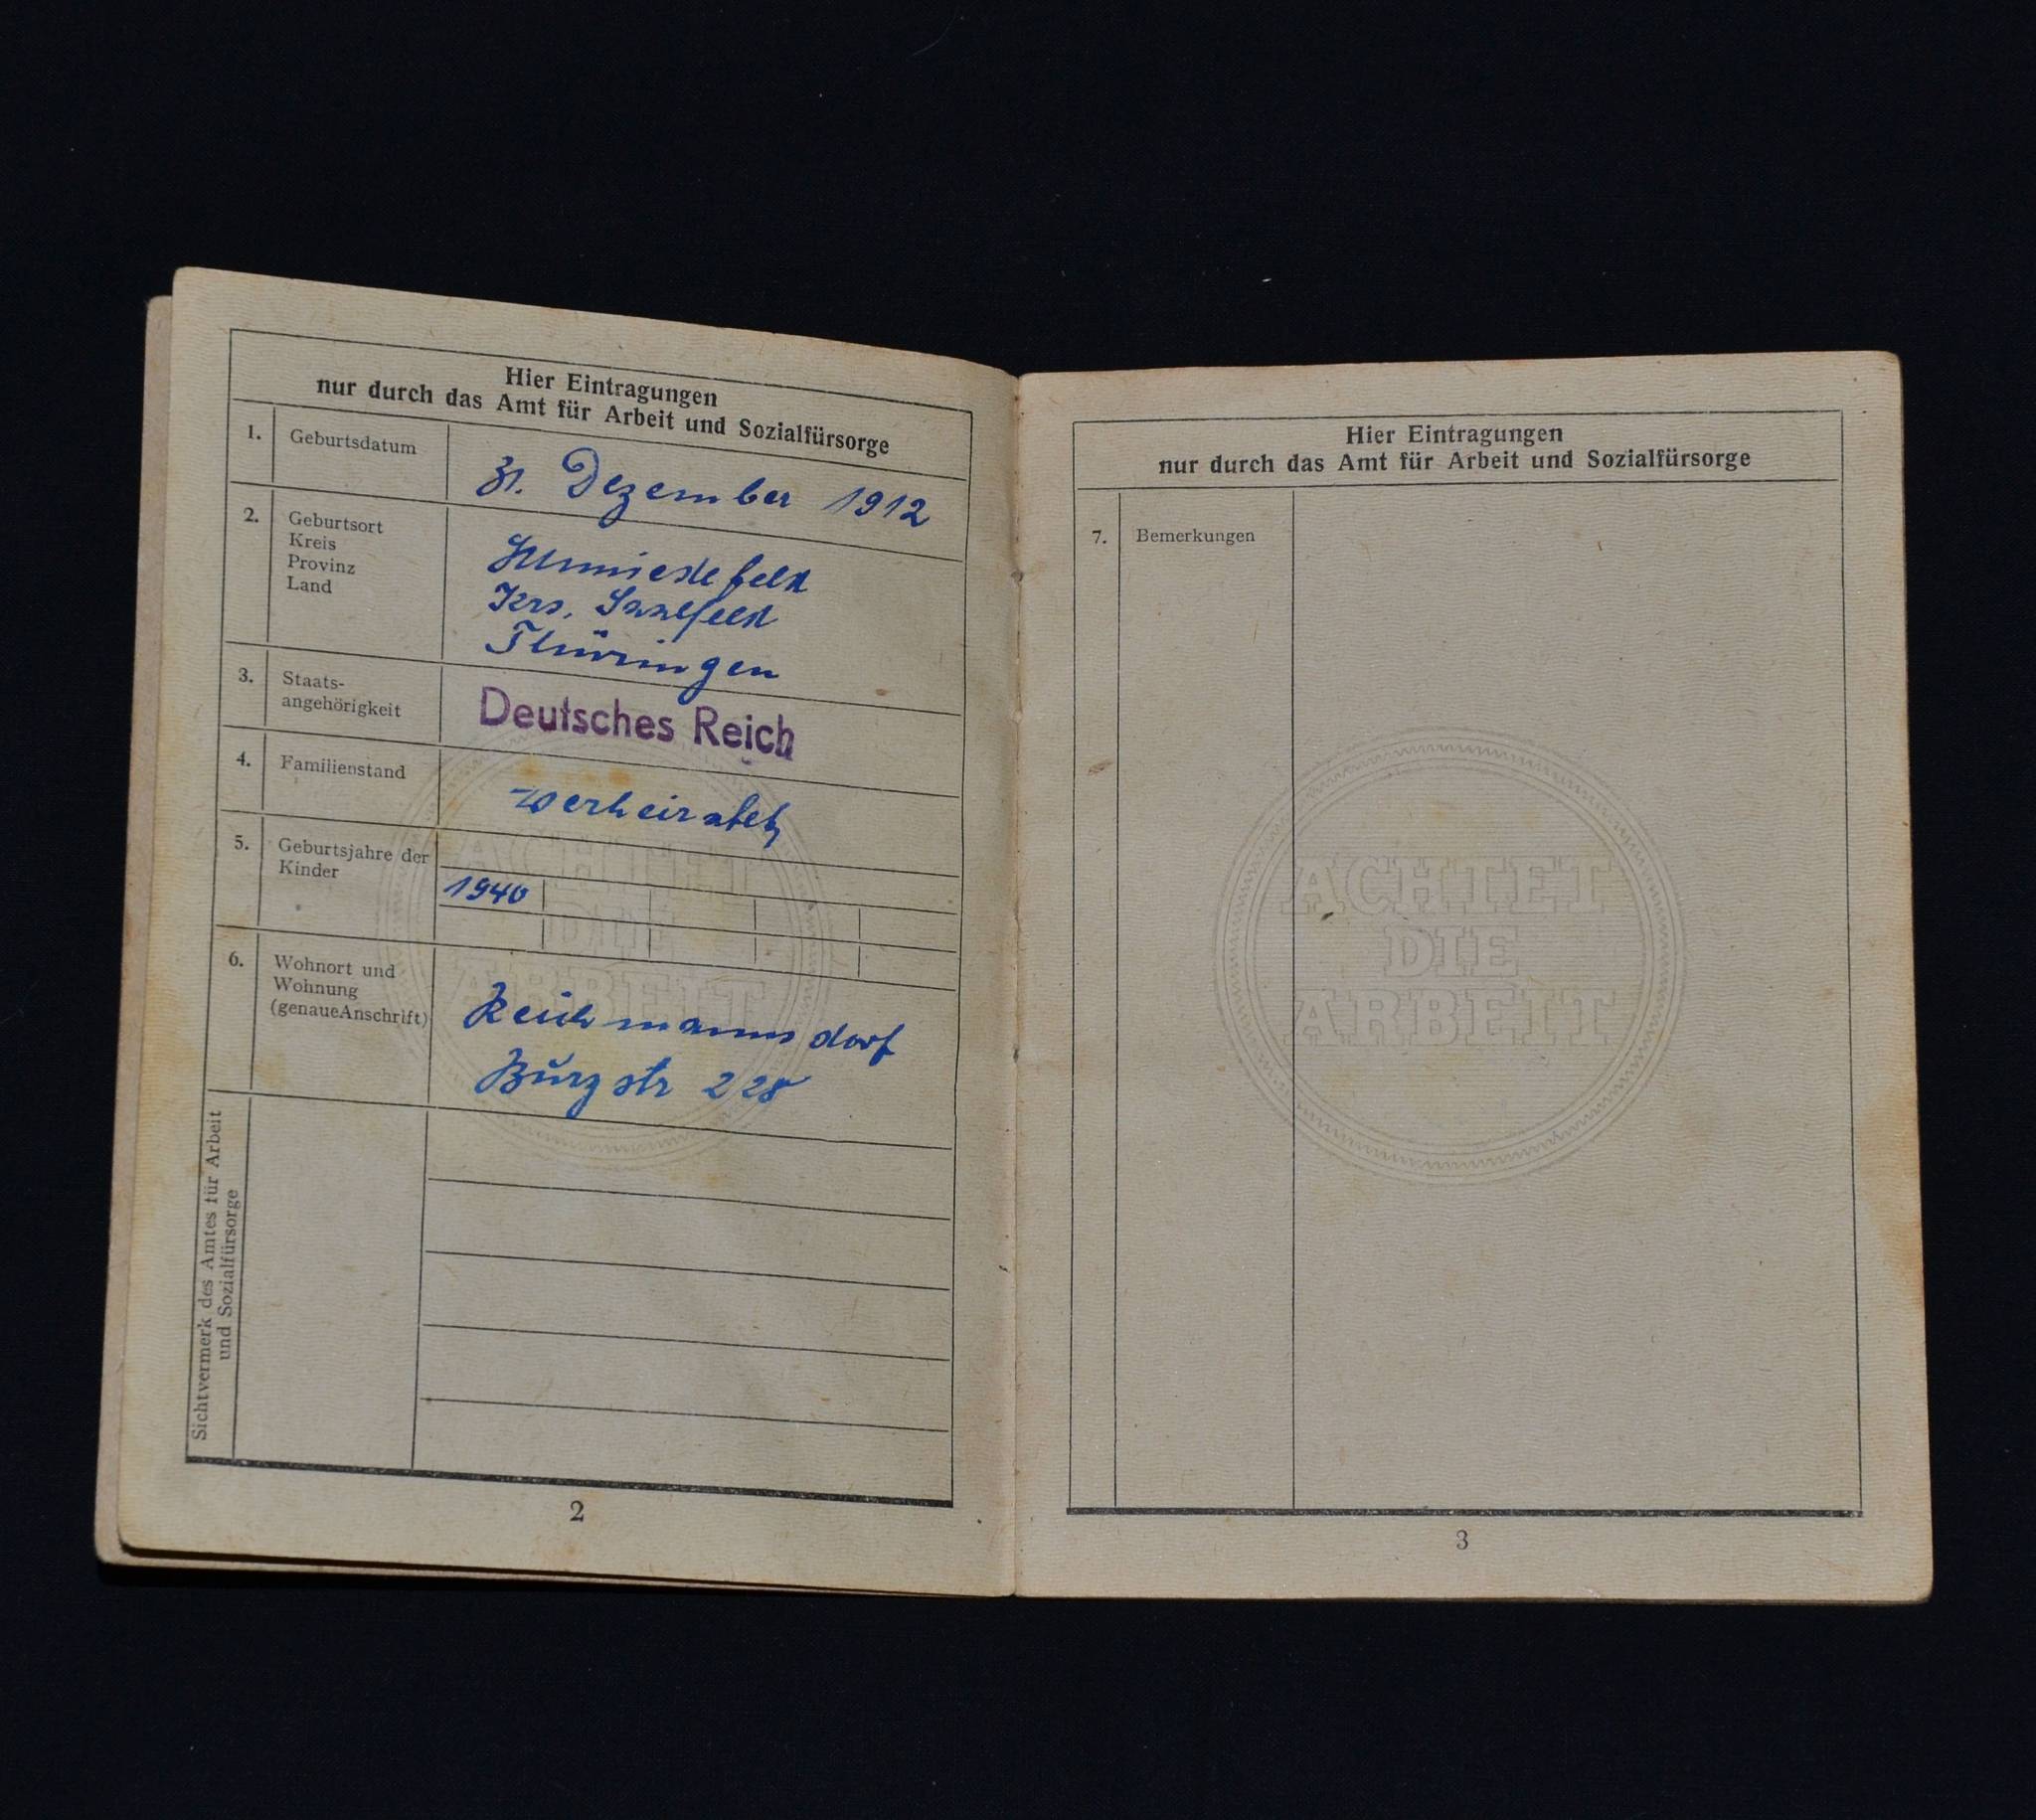 Hier Eintragungen
nur durch das Amt für Arbeit und Sozialfürsorge
1. Geburtsdatum 31. Dezember 1912
2. Geburtsort
Kreis
Provinz
Land
Schmiedefeld
Krs. Saalfeld
Thüringen
3. Staats-
angehörigkeit
Deutsches Reich
4. Familienstand verheiratet
5. Geburtsjahre der
Kinder
1940
6. Wohnort und
Wohnung
(genaueAnschrift)
Reichmannsdorf
Burgstr 228
Sichtvermerk des Amtes für Arbeit
und Sozialfürsorge
ACHTET
DIE
ARBEIT
2
Hier Eintragungen
nur durch das Amt für Arbeit und Sozialfürsorge
7. Bemerkungen
ACHTET
DIE
ARBEIT
3